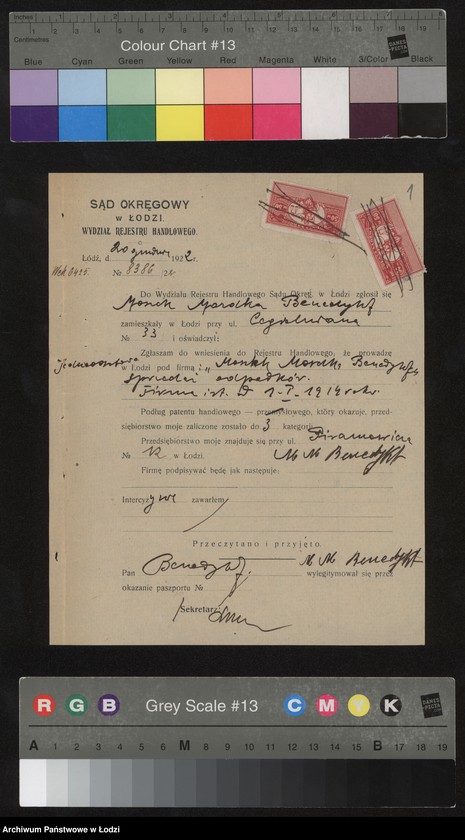 Inches
Centimetres
Colour Chart #13
DANES PICTA
Blue Cyan Green Yellow Red Magenta White 3/Color Black
1
SĄD OKRĘGOWY
w ŁODZI.
WYDZIAŁ REJESTRU HANDLOWEGO.
Łódź, d. 20 grudnia 1922 r.
№ 8386 /22
Do Wydziału Rejestru Handlowego Sądu Okręg. w Łodzi zgłosił się
Monek Mordka Benedykt
zamieszkały w Łodzi przy ul. Cegielniana
№ 33 i oświadczył:
Zgłaszam do wniesienia do Rejestru Handlowego, że prowadzę
w Łodzi pod firmą: „Monek Mordka Benedykt"
sprzedaż odpadków.
Firma ist. od 1-I 1914 roku.
Podług patentu handlowego — przemysłowego, który okazuję, przed-
siębiorstwo moje zaliczone zostało do 3 kategorji.
Przedsiębiorstwo moje znajduje się przy ul. Piramowicza
№ 12 w Łodzi.
Firmę podpisywać będę jak następuje:
M M Benedykt
Intercyzy nie zawarłem
Przeczytano i przyjęto.
M M Benedykt
Pan Benedykt wylegitymował się przez
okazanie paszportu №
Sekretarz
R G B Grey Scale #13 C M Y K
DANES PICTA
A 1 2 3 4 5 6 M 8 9 10 11 12 13 14 15 B 17 18 19
Archiwum Państwowe w Łodzi